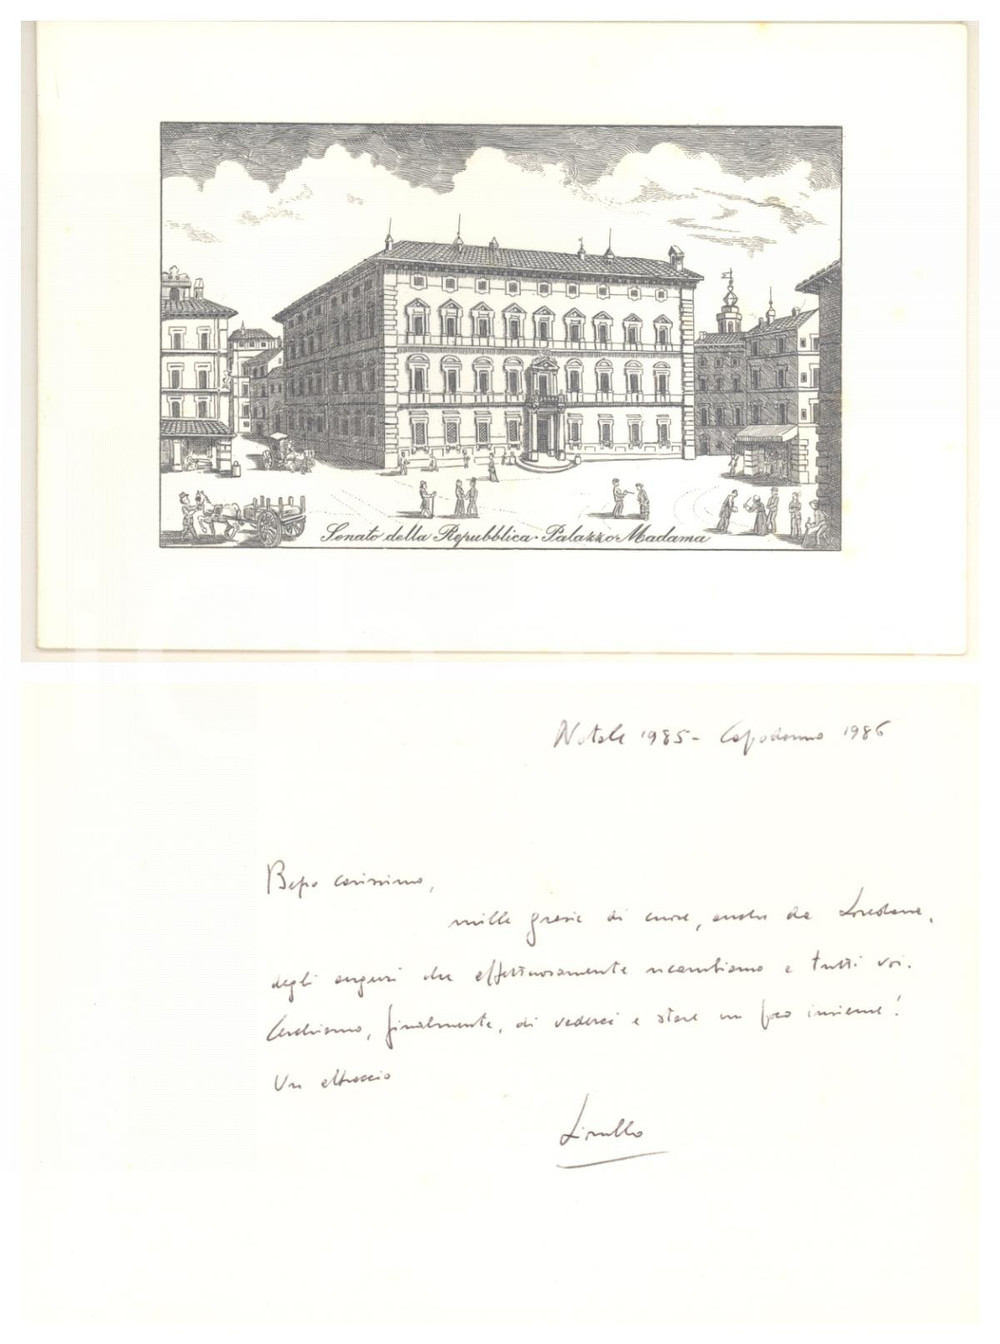 Senato della Repubblica · Palazzo Madama
Natale 1985 - Capodanno 1986
Bepo carissimo,
mille grazie di cuore, anche da Loredana,
degli auguri che affettuosamente ricambiamo a tutti voi.
Cerchiamo, finalmente, di vederci e stare un po' insieme!
Un abbraccio